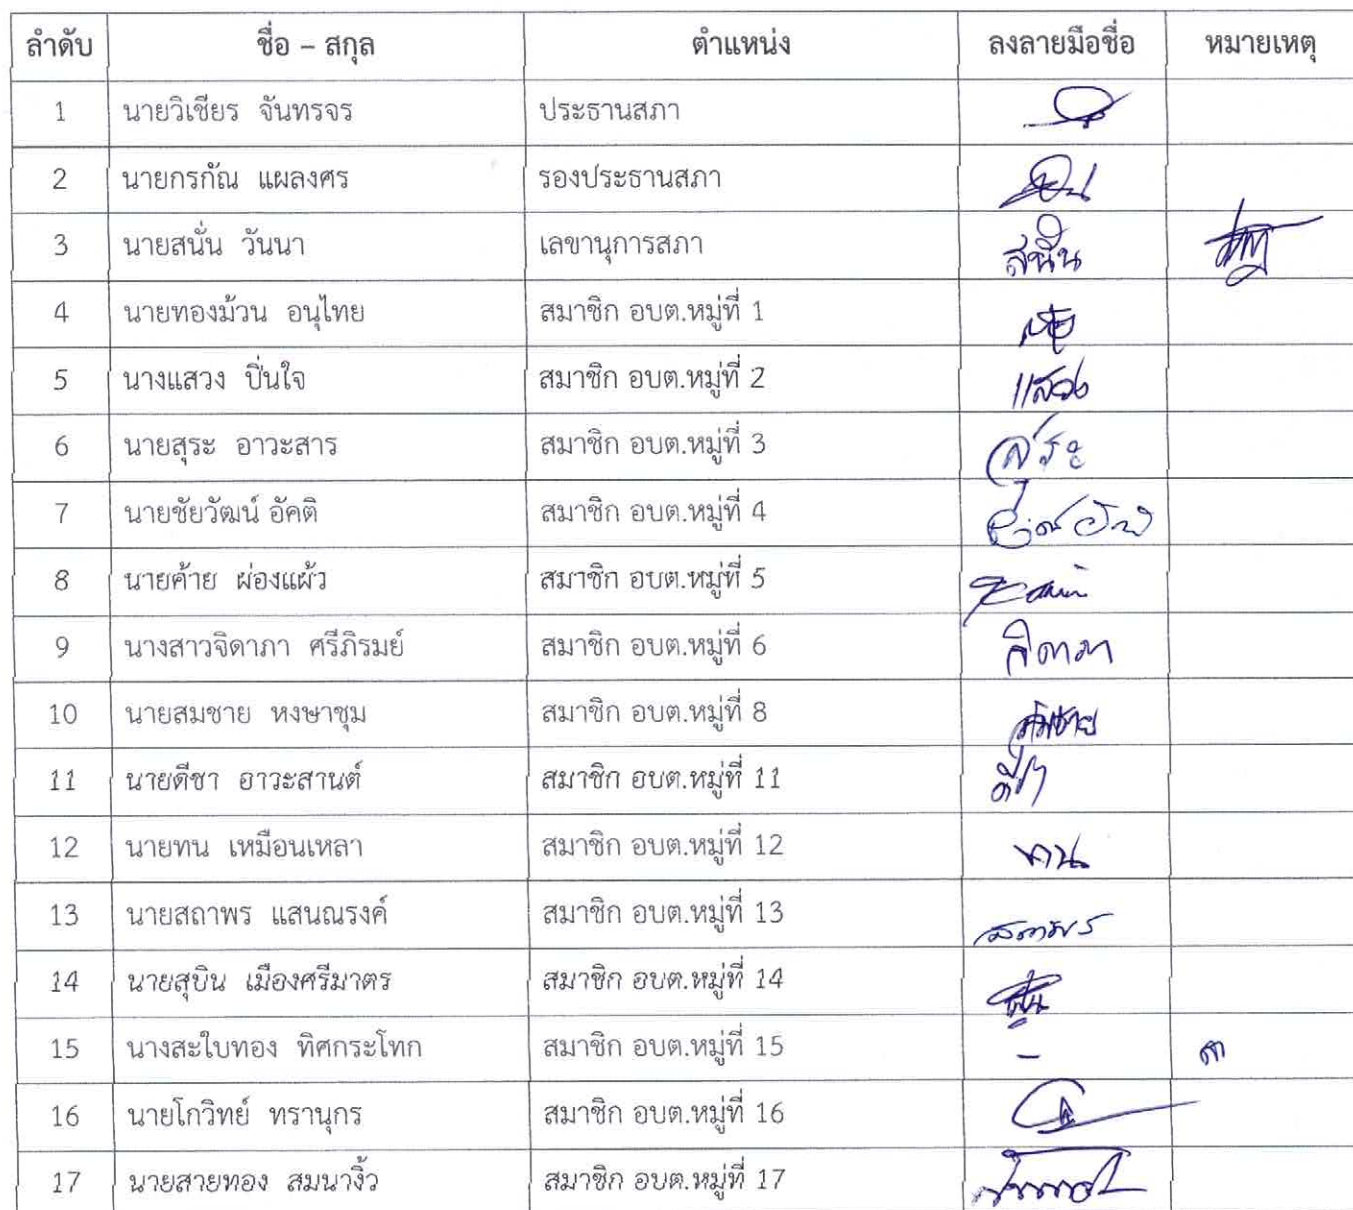 ลำดับ ชื่อ – สกุล ตำแหน่ง ลงลายมือชื่อ หมายเหตุ
1 นายวิเชียร จันทรจร ประธานสภา
2 นายกรกัณ แผลงศร รองประธานสภา
3 นายสนั่น วันนา เลขานุการสภา สนั่น
4 นายทองม้วน อนุไทย สมาชิก อบต.หมู่ที่ 1
5 นางแสวง ปิ่นใจ สมาชิก อบต.หมู่ที่ 2 แสวง
6 นายสุระ อาวะสาร สมาชิก อบต.หมู่ที่ 3 สุระ
7 นายชัยวัฒน์ อัคติ สมาชิก อบต.หมู่ที่ 4
8 นายค้าย ผ่องแผ้ว สมาชิก อบต.หมู่ที่ 5
9 นางสาวจิดาภา ศรีภิรมย์ สมาชิก อบต.หมู่ที่ 6 จิดาภา
10 นายสมชาย หงษาชุม สมาชิก อบต.หมู่ที่ 8 สมชาย
11 นายดีชา อาวะสานต์ สมาชิก อบต.หมู่ที่ 11
12 นายทน เหมือนเหลา สมาชิก อบต.หมู่ที่ 12
13 นายสถาพร แสนณรงค์ สมาชิก อบต.หมู่ที่ 13 สถาพร
14 นายสุบิน เมืองศรีมาตร สมาชิก อบต.หมู่ที่ 14
15 นางสะใบทอง ทิศกระโทก สมาชิก อบต.หมู่ที่ 15 -
16 นายโกวิทย์ ทรานุกร สมาชิก อบต.หมู่ที่ 16
17 นายสายทอง สมนางิ้ว สมาชิก อบต.หมู่ที่ 17